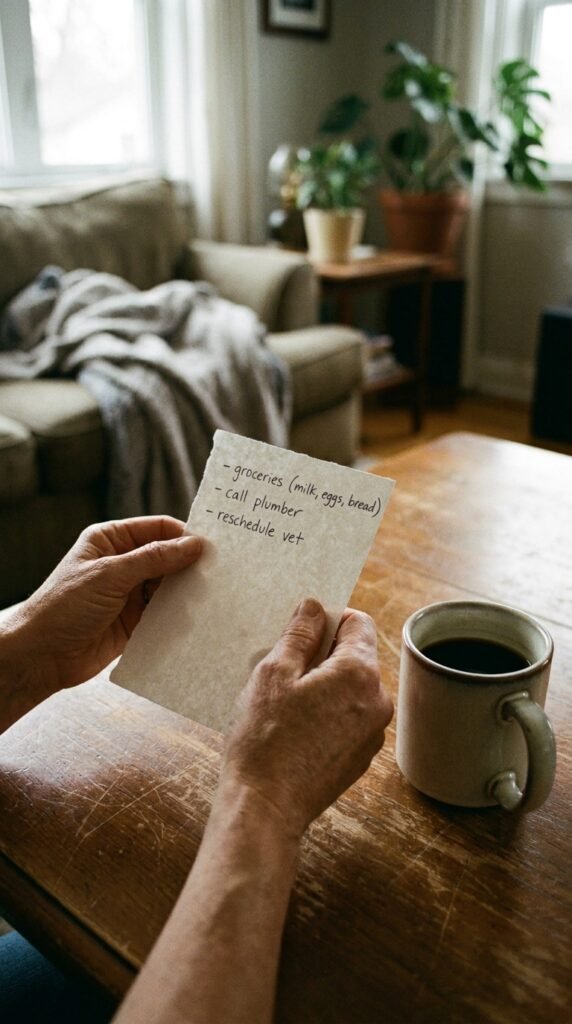 - groceries (milk, eggs, bread)
- call plumber
- reschedule vet